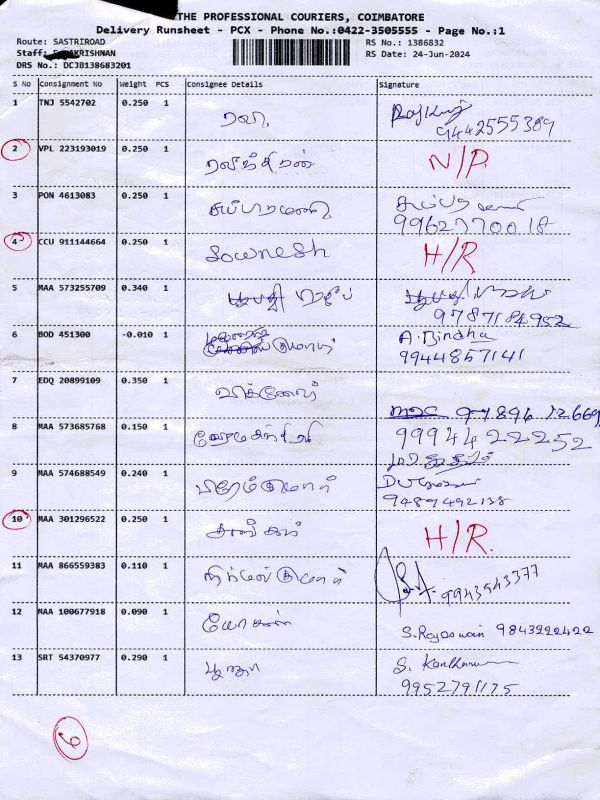 THE PROFESSIONAL COURIERS, COIMBATORE
Delivery Runsheet - PCX - Phone No.:0422-3505555 - Page No.:1
Route: SASTRIROAD
RS No.: 1386832
Staff: AKRISHNAN
RS Date: 24-Jun-2024
DRS No.: DCJB138683201
S No Consignment No Weight PCS Consignee Details Signature
1 TNJ 5542702 0.250 1 ரவி Rajkumar
9442555389
2 VPL 223193019 0.250 1 ரவிந்திரன் N/P.
3 PON 4613083 0.250 1 சுப்பரமணி
9962770018
4 CCU 911144664 0.250 1 Sowresh H/R
5 MAA 573255709 0.340 1 பூபதி
9787184952
6 BOD 451300 -0.010 1 A. Bindha
9944857141
7 EDQ 20899109 0.350 1 விக்னேஷ்
97896 12669
8 MAA 573685768 0.150 1 99944 22252
9 MAA 574688549 0.240 1 பிரேம்குமார்
9489492138
10 MAA 301296522 0.250 1 H/R.
11 MAA 866559383 0.110 1 நிர்மல்குமார் 9943543377
12 MAA 100677918 0.090 1 யோகன் 9843222422
13 SRT 54370977 0.290 1 பூஜா
9952791175
6